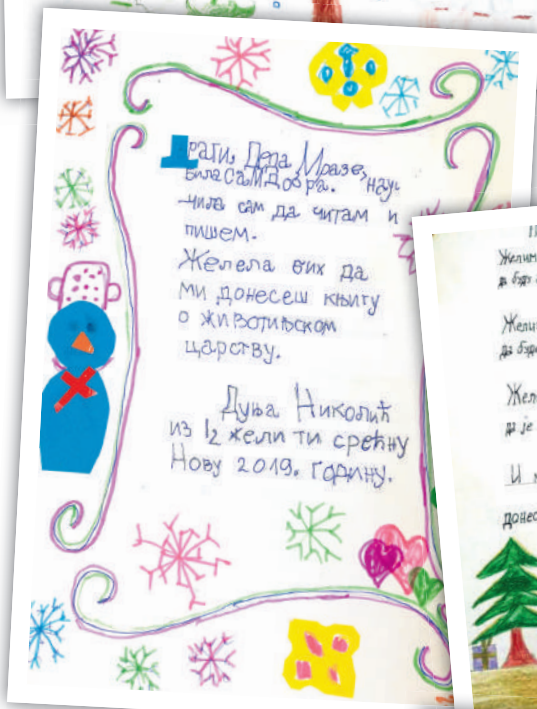 Драги, Деда Мразе,
била сам добра. нау-
чила сам да читам и
пишем.
Желела бих да
ми донесеш књигу
о животињском
царству.
Дуња Николић
из I2 жели ти срећну
Нову 2019. годину.
Желим
да буде
Желим
да буде
Жели
да је
И
донес